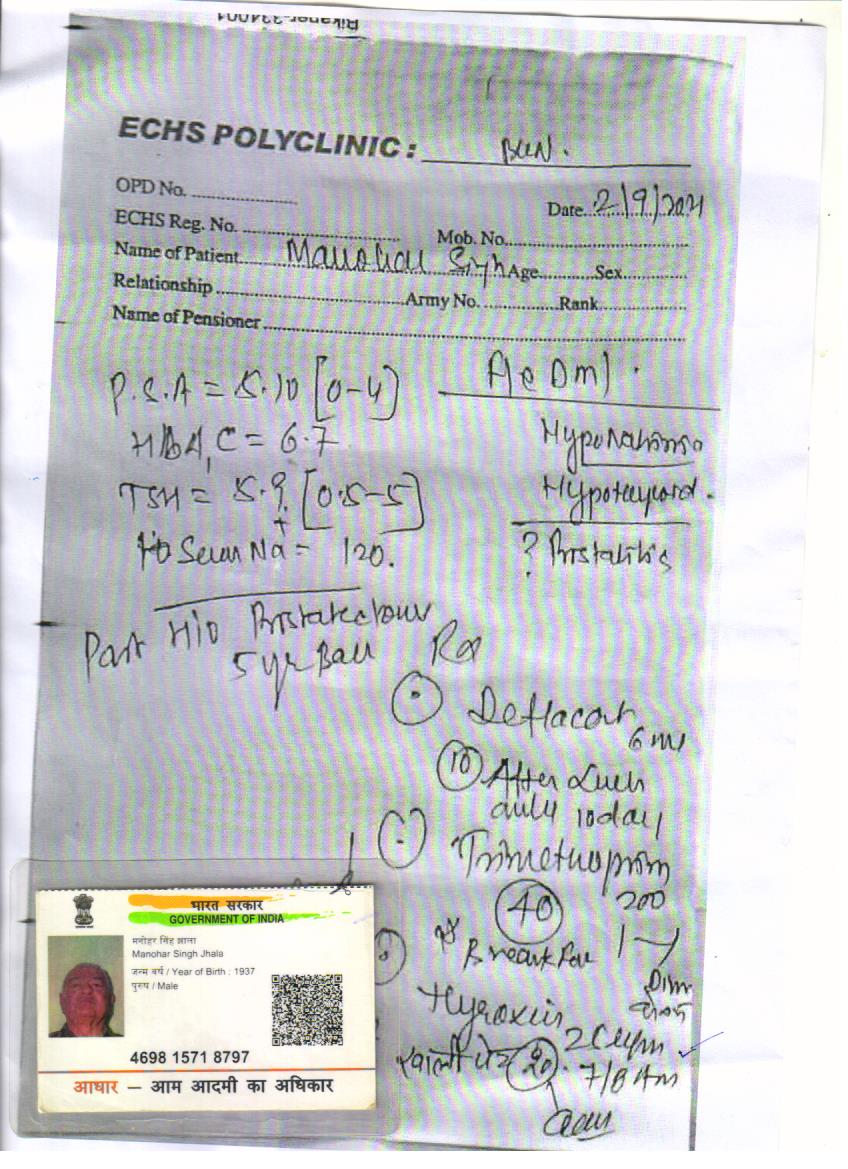 Bikaner-334001
ECHS POLYCLINIC : BKN.
OPD No.
Date 2/9/2021
ECHS Reg. No.
Mob. No.
Name of Patient Manohar Singh Age Sex
Relationship Army No. Rank
Name of Pensioner
P.S.A = 5.10 [0-4]
HBA1C = 6.7
TSH = 5.9 [0.5-5]
Serum Na+ = 120.
Hypothyroid.
? Prostatitis
Past H/O
5 yr Back
Rx
Deflacort
6 mg
10 After Lunch
only 10 day
Trimethoprim
200
40
Breakfast
Thyroxin
खाली पेट 20. 7/8 Am
भारत सरकार
GOVERNMENT OF INDIA
मनोहर सिंह झाला
Manohar Singh Jhala
जन्म वर्ष / Year of Birth : 1937
पुरुष / Male
4698 1571 8797
आधार – आम आदमी का अधिकार